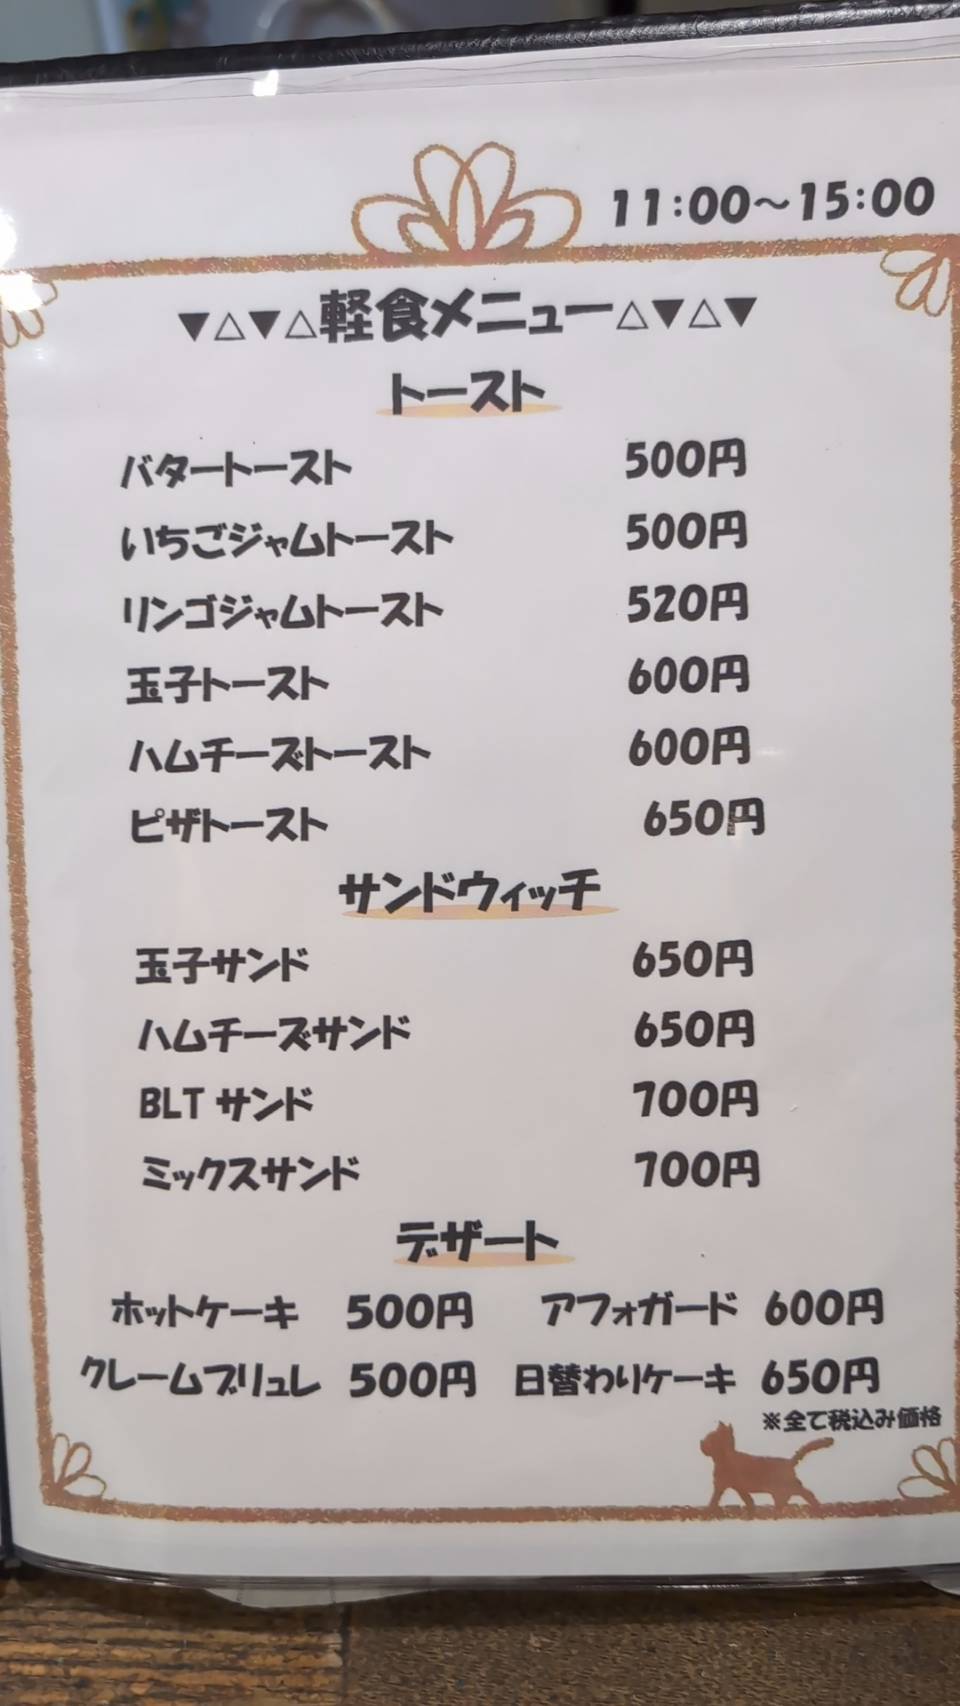 11:00〜15:00
▼△▼△軽食メニュー△▼△▼
トースト
バタートースト 500円
いちごジャムトースト 500円
リンゴジャムトースト 520円
玉子トースト 600円
ハムチーズトースト 600円
ピザトースト 650円
サンドウィッチ
玉子サンド 650円
ハムチーズサンド 650円
BLTサンド 700円
ミックスサンド 700円
デザート
ホットケーキ 500円 アフォガード 600円
クレームブリュレ 500円 日替わりケーキ 650円
※全て税込み価格